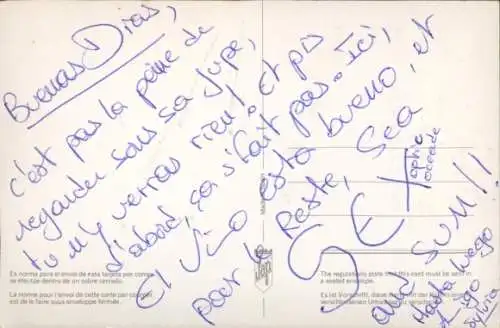 Buenas Dias,
c'est pas la peine de
regarder sous sa jupe,
tu n'y verras rien! Et pis
d'abord, ça s'fait pas. Ici,
El Vino esta bueno, et
pour le Reste, Sea
SEX
and SUN!!
Hasta luego
Sylvia
Es norma para el envio de esta tarjeta por correo
se efectúe dentro de un sobre cerrado.
La norme pour l'envoi de cette carte par courrier
est de le faire sous enveloppe fermée.
The regulations state that this card must be sent in
a sealed envelope.
Es ist Vorschrift, diese
verschlossenen Umschlag zu verschicken.